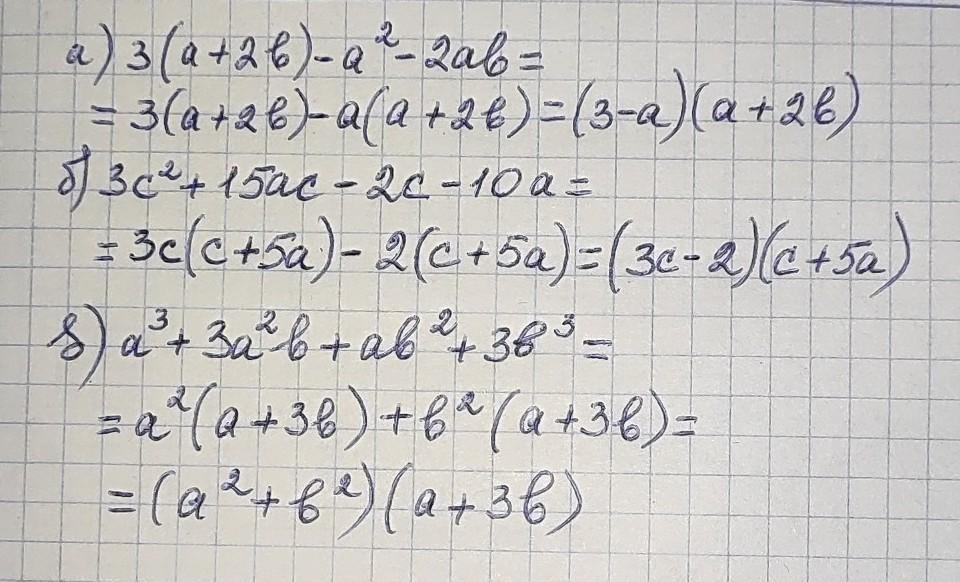 а) 3(a+2b)-a²-2ab=
=3(a+2b)-a(a+2b)=(3-a)(a+2b)
б) 3c²+15ac-2c-10a=
=3c(c+5a)-2(c+5a)=(3c-2)(c+5a)
в) a³+3a²b+ab²+3b³=
=a²(a+3b)+b²(a+3b)=
=(a²+b²)(a+3b)